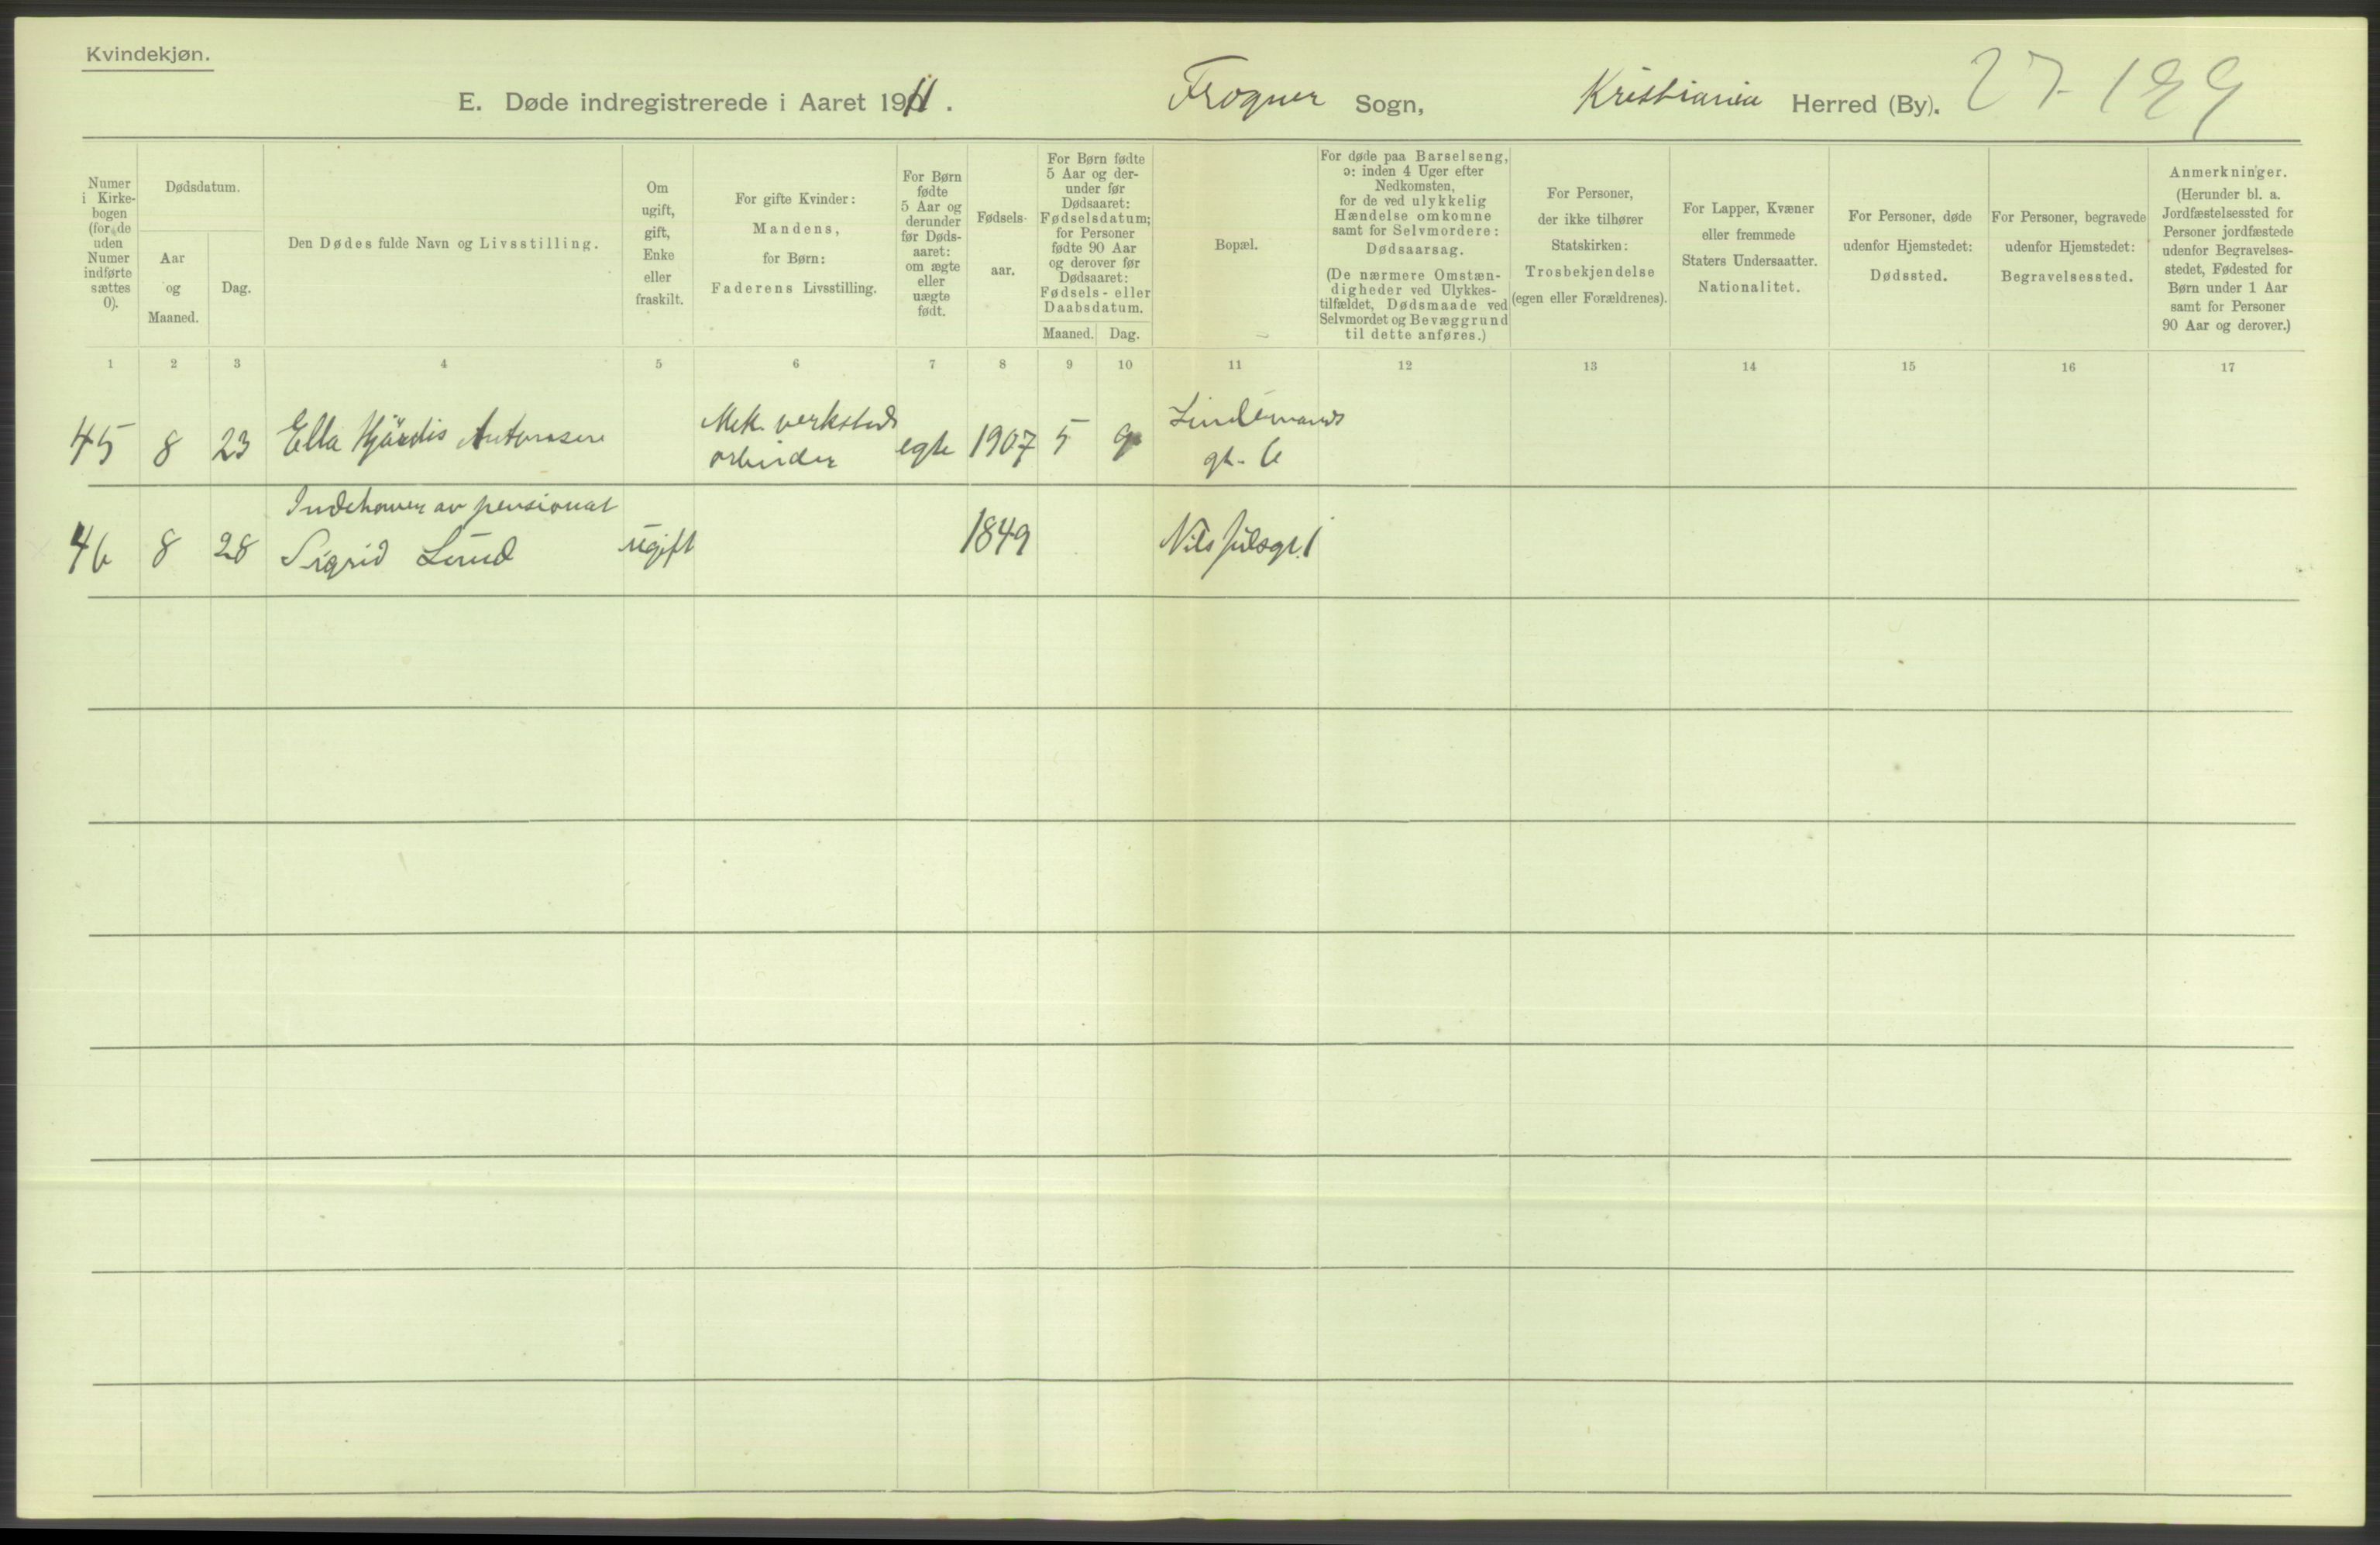 Kvindekjøn.
E. Døde indregistrerede i Aaret 1911.
Frogner Sogn,
Kristiania Herred (By).
27-
Numer
i Kirke-
bogen
(for de
uden
Numer
indførte
sættes
0).
Dødsdatum.
Aar
og
Maaned.
Dag.
Den Dødes fulde Navn og Livsstilling.
Om
ugift,
gift,
Enke
eller
fraskilt.
For gifte Kvinder:
Mandens,
for Børn:
Faderens Livsstilling.
For Børn
fødte
5 Aar og
derunder
før Døds-
aaret:
om ægte
eller
uægte
født.
Fødsels-
aar.
For Børn fødte
5 Aar og der-
under før
Dødsaaret:
Fødselsdatum;
for Personer
fødte 90 Aar
og derover før
Dødsaaret:
Fødsels- eller
Daabsdatum.
Maaned.
Dag.
Bopæl.
For døde paa Barselseng,
ɔ: inden 4 Uger efter
Nedkomsten,
for de ved ulykkelig
Hændelse omkomne
samt for Selvmordere:
Dødsaarsag.
(De nærmere Omstæn-
digheder ved Ulykkes-
tilfældet, Dødsmaade ved
Selvmordet og Bevæggrund
til dette anføres.)
For Personer,
der ikke tilhører
Statskirken:
Trosbekjendelse
(egen eller Forældrenes).
For Lapper, Kvæner
eller fremmede
Staters Undersaatter.
Nationalitet.
For Personer, døde
udenfor Hjemstedet:
Dødssted.
For Personer, begravede
udenfor Hjemstedet:
Begravelsessted.
Anmerkninger.
(Herunder bl. a.
Jordfæstelsessted for
Personer jordfæstede
udenfor Begravelses-
stedet, Fødested for
Børn under 1 Aar
samt for Personer
90 Aar og derover.)
1 2 3 4 5 6 7 8 9 10 11 12 13 14 15 16 17
45 8 23 Ella Hjördis Antonsen
Mek. verksteds
arbeider
egte 1907 5 9
Lindemans
gt. 6
Indehaver av pensionat
46 8 28 Sigrid Lund ugift 1849 Nils Julsgt. 1